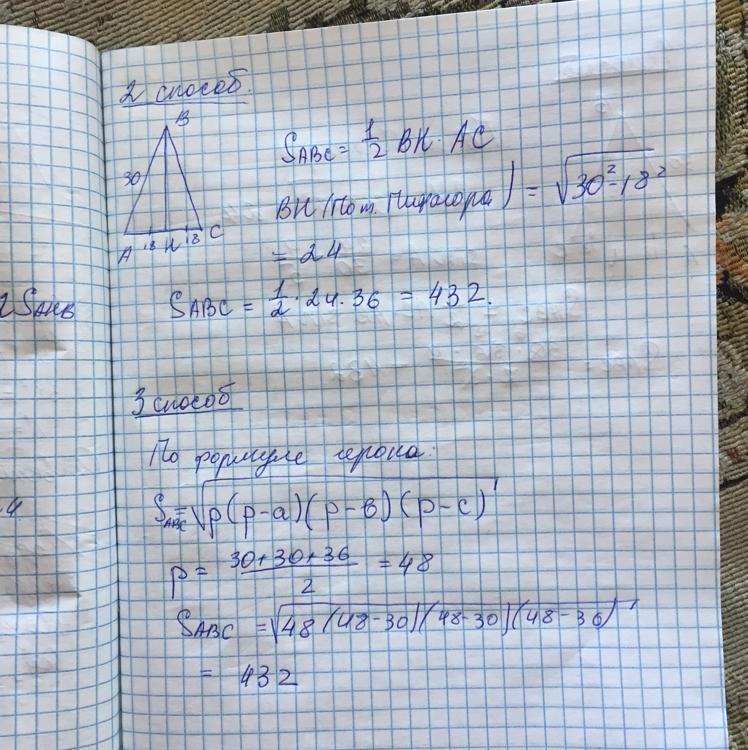 2 способ.
B
30
A 18 H 18 C
S ABC = 1/2 BH · AC
BH (По т. Пифагора) = √30² - 18²
= 24
S ABC = 1/2 · 24 · 36 = 432.
2 S AHB
3 способ
По формуле герона:
S ABC = √p(p-a)(p-в)(p-c)
.4
p = 30+30+36 / 2 = 48
S ABC = √48 (48-30)(48-30)(48-36)
= 432